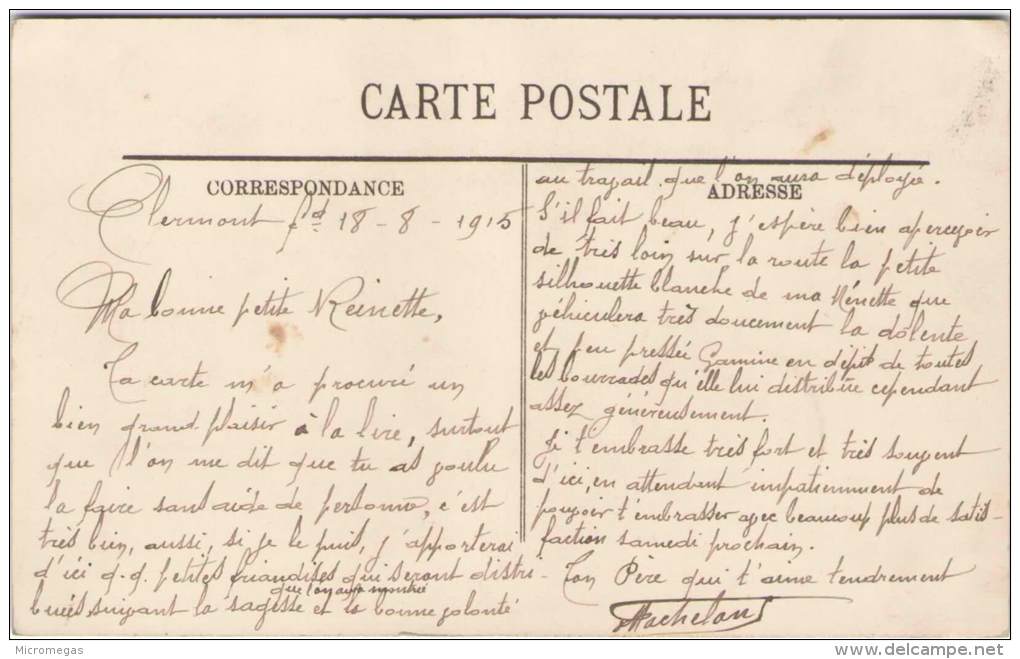 CARTE POSTALE
CORRESPONDANCE
Clermont fd 18-8-1915
Ma bonne petite Reinette,
Ta carte m'a procuré un
bien grand plaisir à la lire, surtout
que l'on me dit que tu as voulu
la faire sans aide de personne, c'est
très bien, aussi, si je le puis, j'apporterai
d'ici q.q. petites friandises qui seront distri-
buées, suivant la sagesse et la bonne volonté
que l'on aura montrée
ADRESSE
au travail que l'on aura déployée.
S'il fait beau, j'espère bien apercevoir
de très loin sur la route la petite
silhouette blanche de ma Nénette que
véhiculera très doucement la dolente
et peu pressée Gamine en dépit de toutes
les bourrades qu'elle lui distribue cependant
assez généreusement.
Je t'embrasse très fort et très souvent
d'ici, en attendant impatiemment de
pouvoir t'embrasser avec beaucoup plus de satis-
faction samedi prochain.
Ton Père qui t'aime tendrement
Micromegas
www.delcampe.net